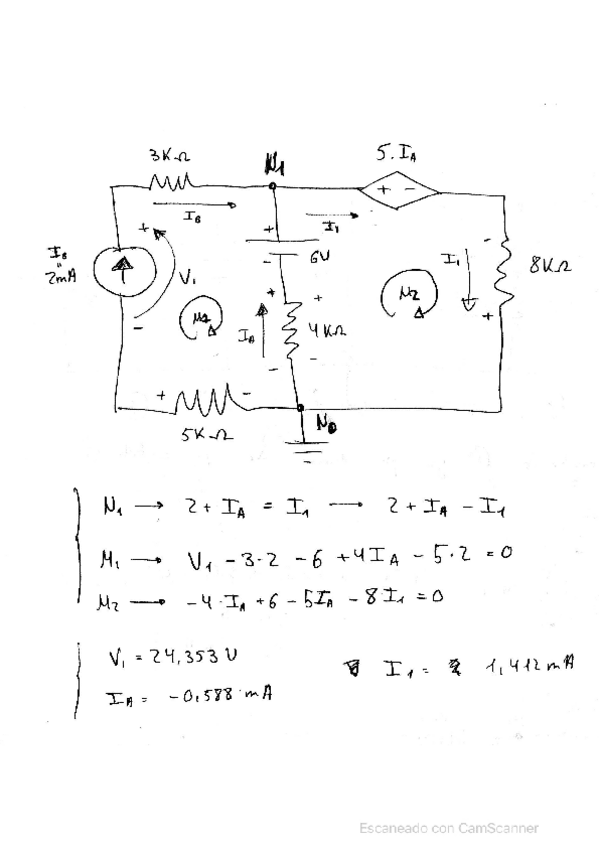 3KΩ
N1
5.IA
IB
I1
IB
"
2mA
+
-
V1
M1
+
-
6V
IA
+
-
4KΩ
+
-
M2
I1
-
+
8KΩ
+
-
5KΩ
N0
N1 → 2 + IA = I1 → 2 + IA - I1
M1 → V1 - 3·2 - 6 + 4IA - 5·2 = 0
M2 → -4·IA + 6 - 5IA - 8I1 = 0
V1 = 24,353 V
I1 = 1,412 mA
IA = -0,588 mA
Escaneado con CamScanner